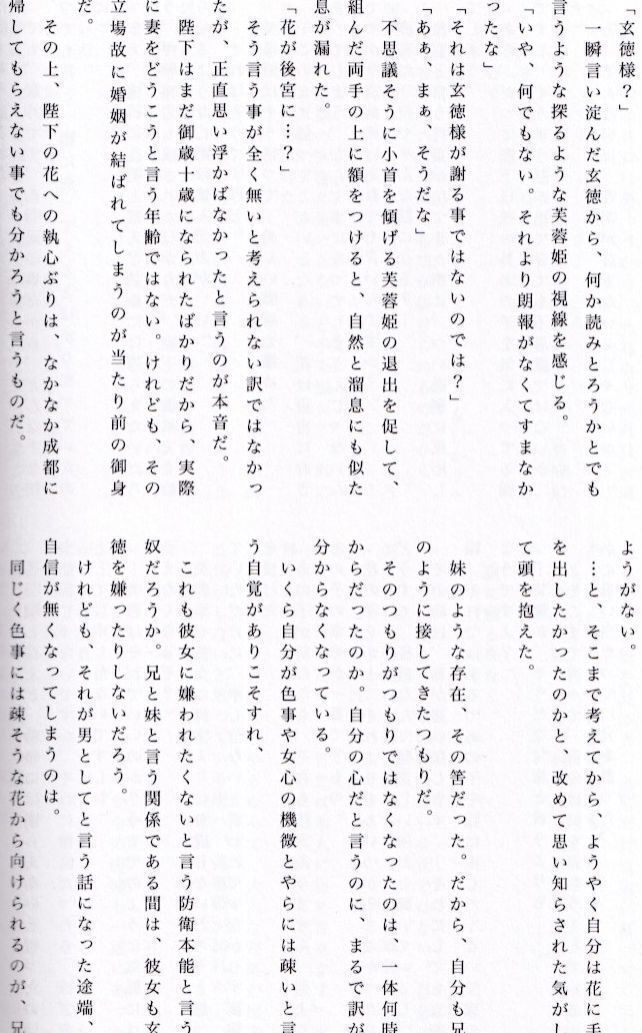 「玄徳様？」
一瞬言い淀んだ玄徳から、何か読みとろうかとでも
言うような探るような芙蓉姫の視線を感じる。
「いや、何でもない。それより朗報がなくてすまなか
ったな」
「それは玄徳様が謝る事ではないのでは？」
「あぁ、まぁ、そうだな」
不思議そうに小首を傾げる芙蓉姫の退出を促して、
組んだ両手の上に額をつけると、自然と溜息にも似た
息が漏れた。
「花が後宮に…？」
そう言う事が全く無いと考えられない訳ではなかっ
たが、正直思い浮かばなかったと言うのが本音だ。
陛下はまだ御歳十歳になられたばかりだから、実際
に妻をどうこうと言う年齢ではない。けれども、その
立場故に婚姻が結ばれてしまうのが当たり前の御身
だ。
その上、陛下の花への執心ぶりは、なかなか成都に
帰してもらえない事でも分かろうと言うものだ。
ようがない。
…と、そこまで考えてから、ようやく自分は花に手
を出したかったのかと、改めて思い知らされた気がし
て頭を抱えた。
妹のような存在、その筈だった。だから、自分も兄
のように接してきたつもりだ。
そのつもりがつもりではなくなったのは、一体何時
からだったのか。自分の心だと言うのに、まるで訳が
分からなくなっている。
いくら自分が色事や女心の機微とやらには疎いと言
う自覚がありこそすれ、
これも彼女に嫌われたくないと言う防衛本能と言う
奴だろうか。兄と妹と言う関係である間は、彼女も玄
徳を嫌ったりしないだろう。
けれども、それが男としてと言う話になった途端、
自信が無くなってしまうのは。
同じく色事には疎そうな花から向けられるのが、兄